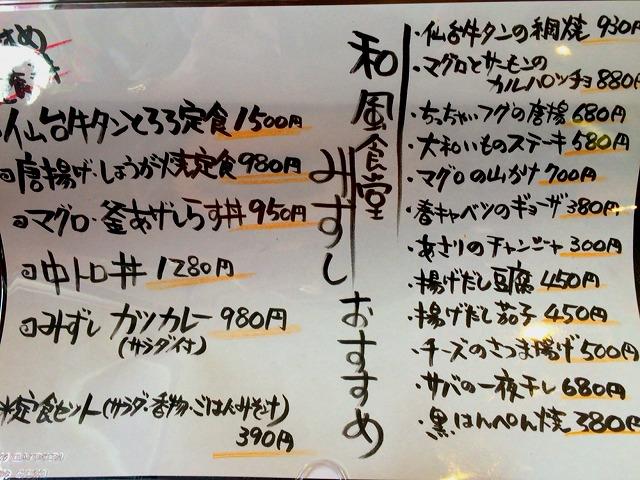 和風食堂
みずし おすすめ
・仙台牛タンの網焼 930円
・マグロとサーモンの
カルパッチョ 880円
・ちっちゃいフグの唐揚 680円
・大和いものステーキ 580円
・マグロの山かけ 700円
・春キャベツのギョーザ 380円
・あさりのチャンジャ 300円
・揚げだし豆腐 450円
・揚げだし茄子 450円
・チーズのさつま揚げ 500円
・サバの一夜干し 680円
・黒はんぺん焼 380円
仙台牛タンとろろ定食 1500円
唐揚げ・しょうが焼定食 980円
マグロ・釜あげしらす丼 950円
中トロ丼 1280円
みずし カツカレー 980円
(サラダ付)
※定食セット(サラダ・香物・ごはん・みそ汁)
390円